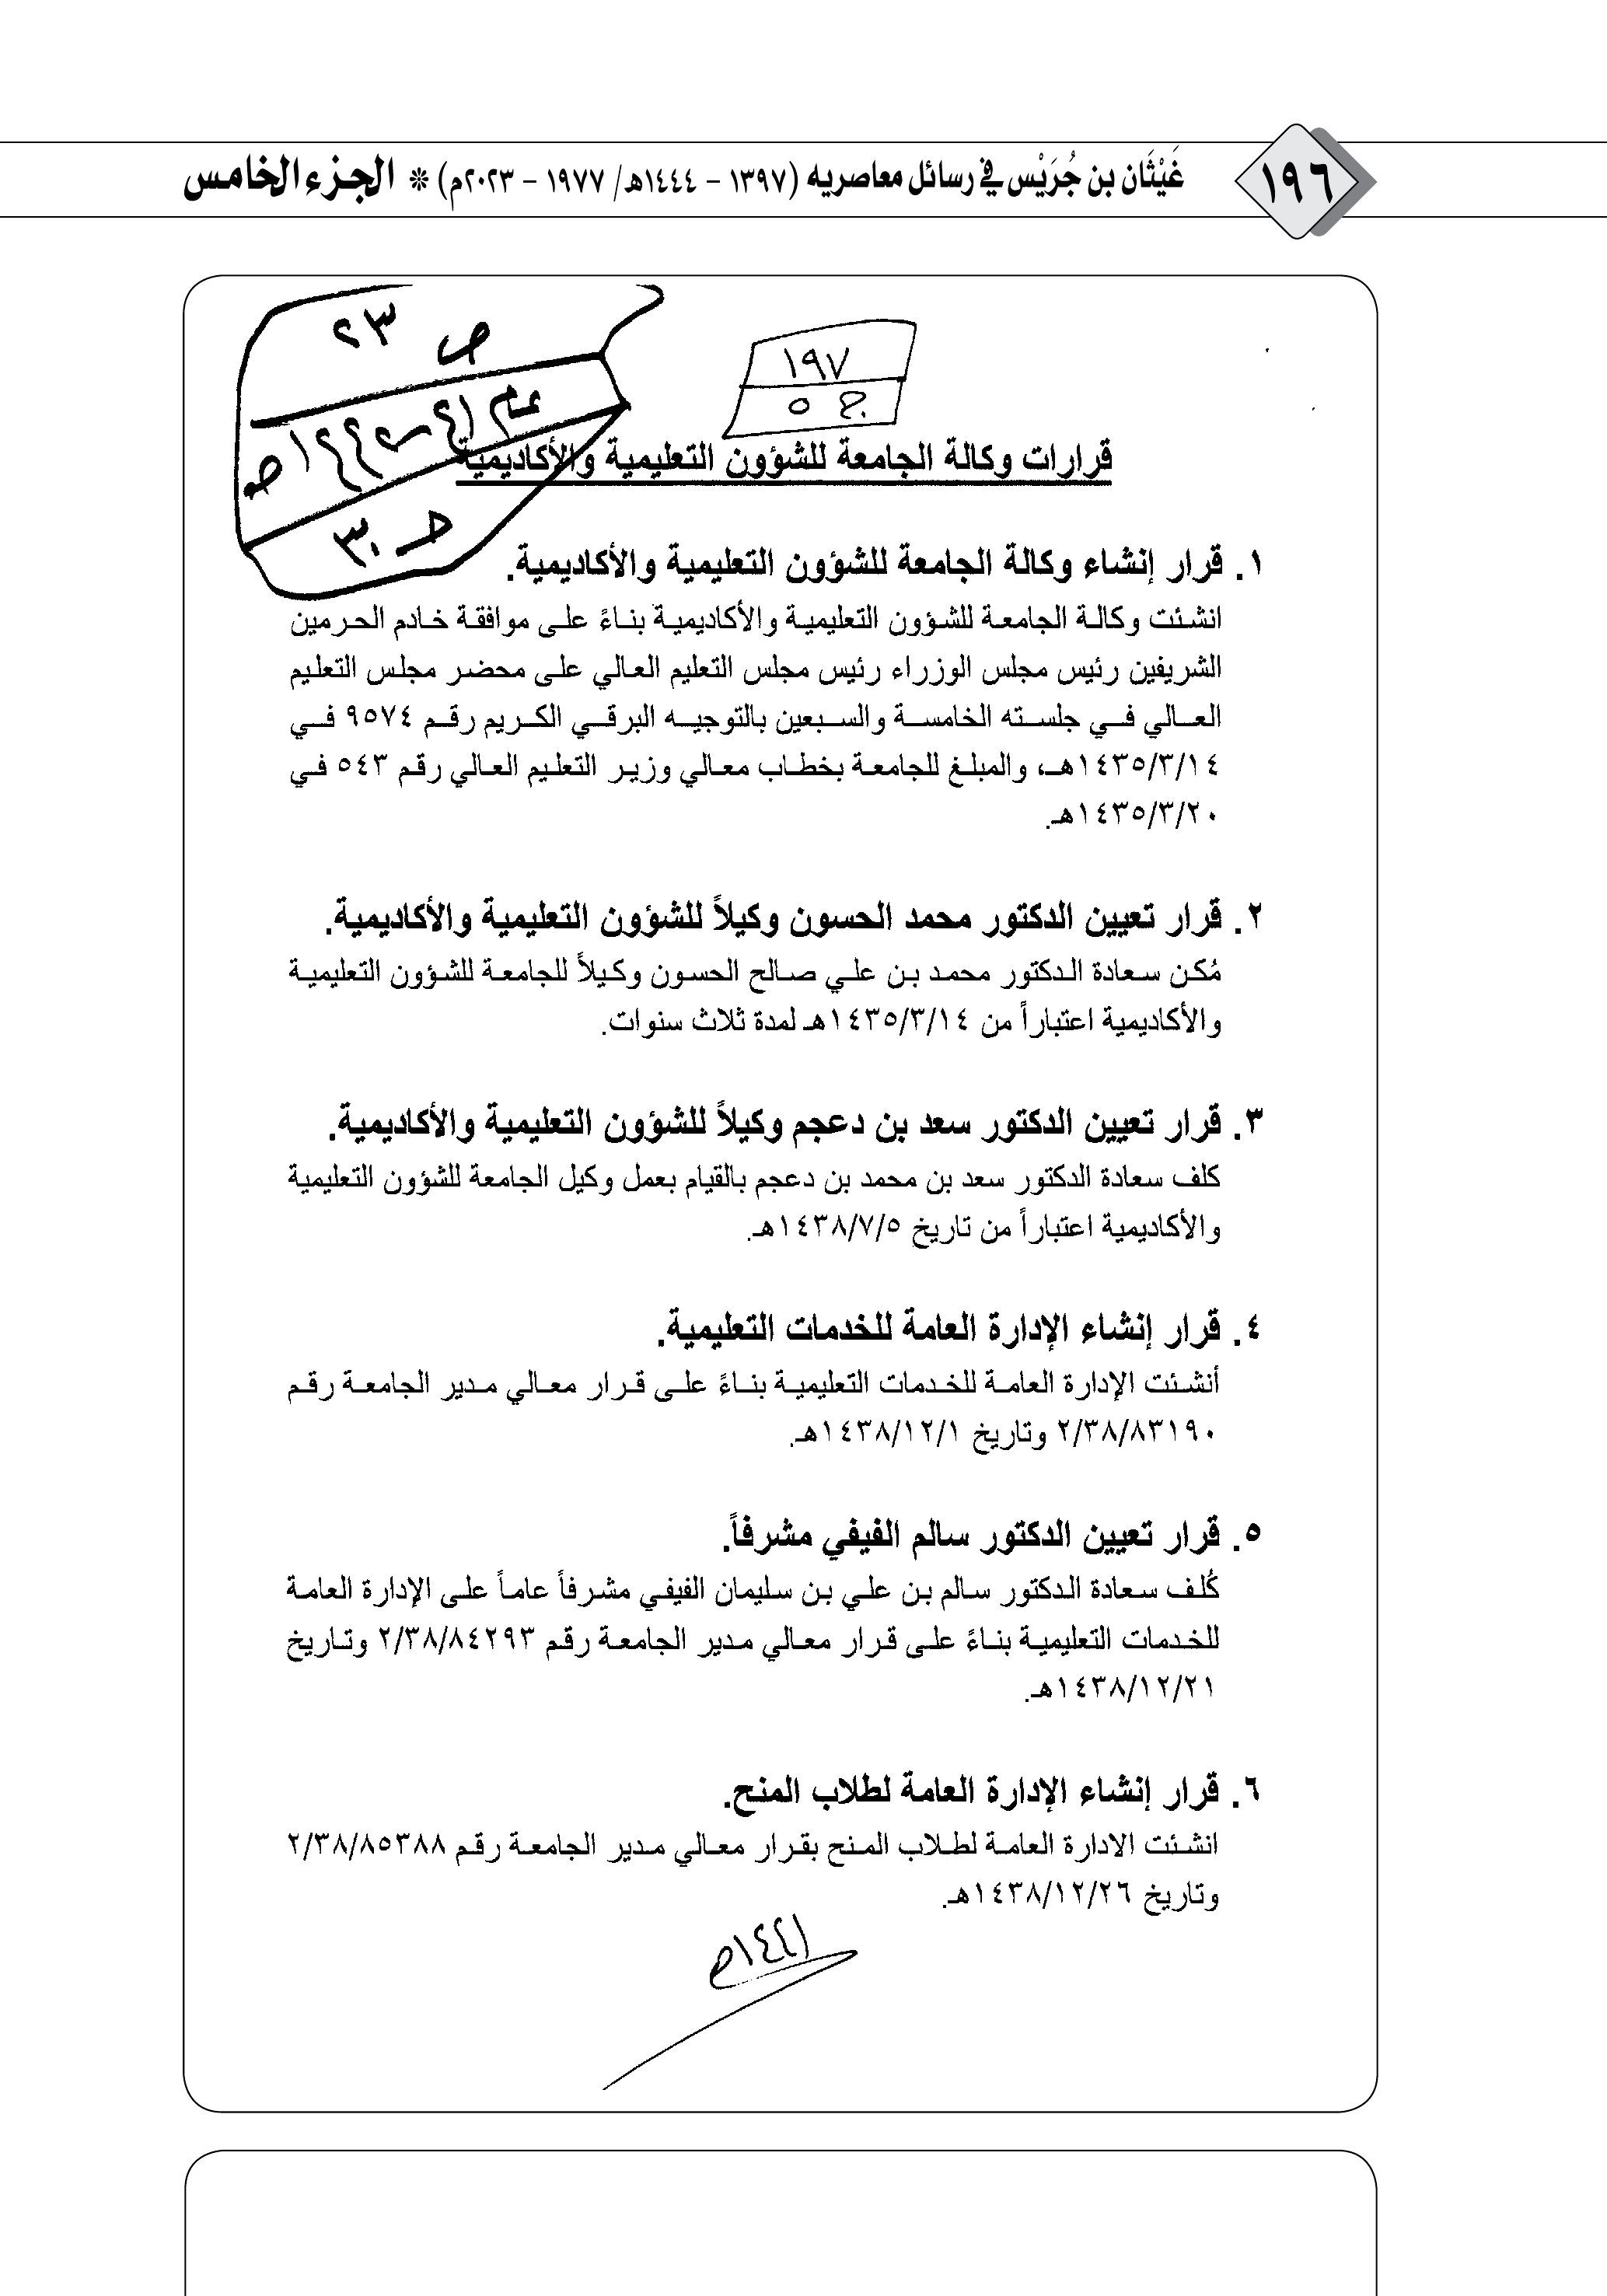 ١٩٦
غَيْثَان بن جُرَيْس في رسائل معاصريه (١٣٩٧ – ١٤٤٤هـ/ ١٩٧٧ – ٢٠٢٣م) * الجزء الخامس
ص ٢٣
١٩٧
ج ٥
عام ٤١-١٤٤٢هـ
ج ٣٠
قرارات وكالة الجامعة للشؤون التعليمية والأكاديمية
١. قرار إنشاء وكالة الجامعة للشؤون التعليمية والأكاديمية.
انشئت وكالة الجامعة للشؤون التعليمية والأكاديمية بناءً على موافقة خادم الحرمين
الشريفين رئيس مجلس الوزراء رئيس مجلس التعليم العالي على محضر مجلس التعليم
العالي في جلسته الخامسة والسبعين بالتوجيه البرقي الكريم رقم ٩٥٧٤ في
١٤٣٥/٣/١٤هـ، والمبلغ للجامعة بخطاب معالي وزير التعليم العالي رقم ٥٤٣ في
١٤٣٥/٣/٢٠هـ.
٢. قرار تعيين الدكتور محمد الحسون وكيلاً للشؤون التعليمية والأكاديمية.
مُكن سعادة الدكتور محمد بن علي صالح الحسون وكيلاً للجامعة للشؤون التعليمية
والأكاديمية اعتباراً من ١٤٣٥/٣/١٤هـ لمدة ثلاث سنوات.
٣. قرار تعيين الدكتور سعد بن دعجم وكيلاً للشؤون التعليمية والأكاديمية.
كلف سعادة الدكتور سعد بن محمد بن دعجم بالقيام بعمل وكيل الجامعة للشؤون التعليمية
والأكاديمية اعتباراً من تاريخ ١٤٣٨/٧/٥هـ.
٤. قرار إنشاء الإدارة العامة للخدمات التعليمية.
أنشئت الإدارة العامة للخدمات التعليمية بناءً على قرار معالي مدير الجامعة رقم
٢/٣٨/٨٣١٩٠ وتاريخ ١٤٣٨/١٢/١هـ.
٥. قرار تعيين الدكتور سالم الفيفي مشرفاً.
كُلف سعادة الدكتور سالم بن علي بن سليمان الفيفي مشرفاً عاماً على الإدارة العامة
للخدمات التعليمية بناءً على قرار معالي مدير الجامعة رقم ٢/٣٨/٨٤٢٩٣ وتاريخ
١٤٣٨/١٢/٢١هـ.
٦. قرار إنشاء الإدارة العامة لطلاب المنح.
انشئت الادارة العامة لطلاب المنح بقرار معالي مدير الجامعة رقم ٢/٣٨/٨٥٣٨٨
وتاريخ ١٤٣٨/١٢/٢٦هـ.
١٤٤١هـ